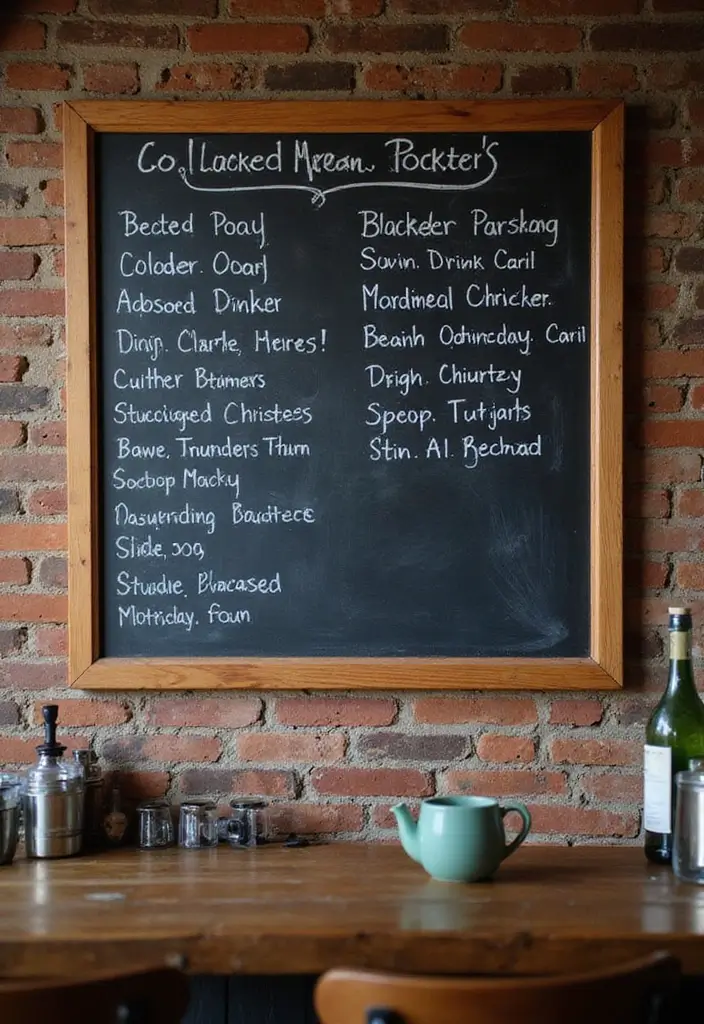 Co,lLacked Mrean. Pockter's
Bected Poay
Coloder. Ooarj
Adosoed Dinker
Dinip. Clarle, Herres!
Cuither Btumers
Stucciuged Christess
Bawe, Trunders Thurn
Socbop Macky
Baudtece
Slide, 309
Studie, Blacased
Motriclay. Foun
Blackeler Parskong
Suvin. Drink Caril
Mardimeal Chricker.
Beanh Odnincday. Caril
Drigh. Chiurtzy
Speop. Tutjarts
Stin. Al. Rechvad